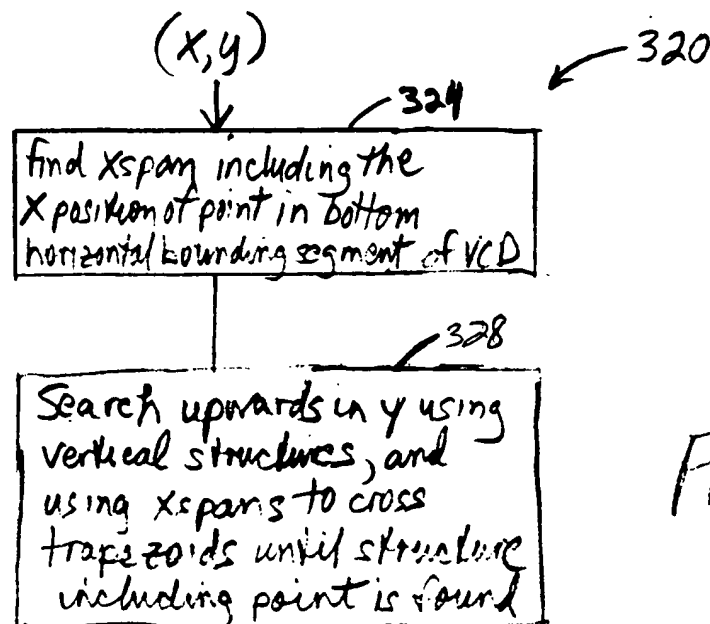 (x,y)
320
324
find xspan including the
x position of point in bottom
horizontal bounding segment of VCD
328
Search upwards in y using
vertical structures, and
using xspans to cross
trapezoids until structure
including point is found